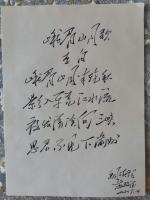 峨眉山月歌
李白
峨眉山月半轮秋
影入平羌江水流
夜发清溪向三峡
思君不见下渝州